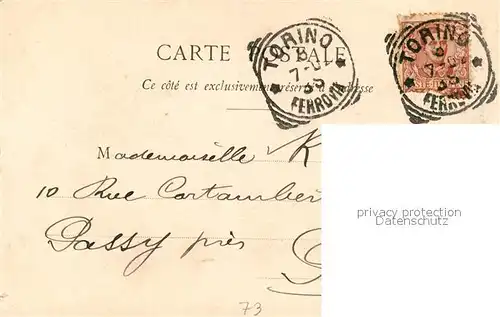 TORINO
6
7-
FERROVIA
TORINO
6
7-
FERROVIA
CARTE POSTALE
Ce côté est exclusivement réservé à l'adresse
Mademoiselle K
10 Rue Cortambert
Passy près
privacy protection
Datenschutz
73